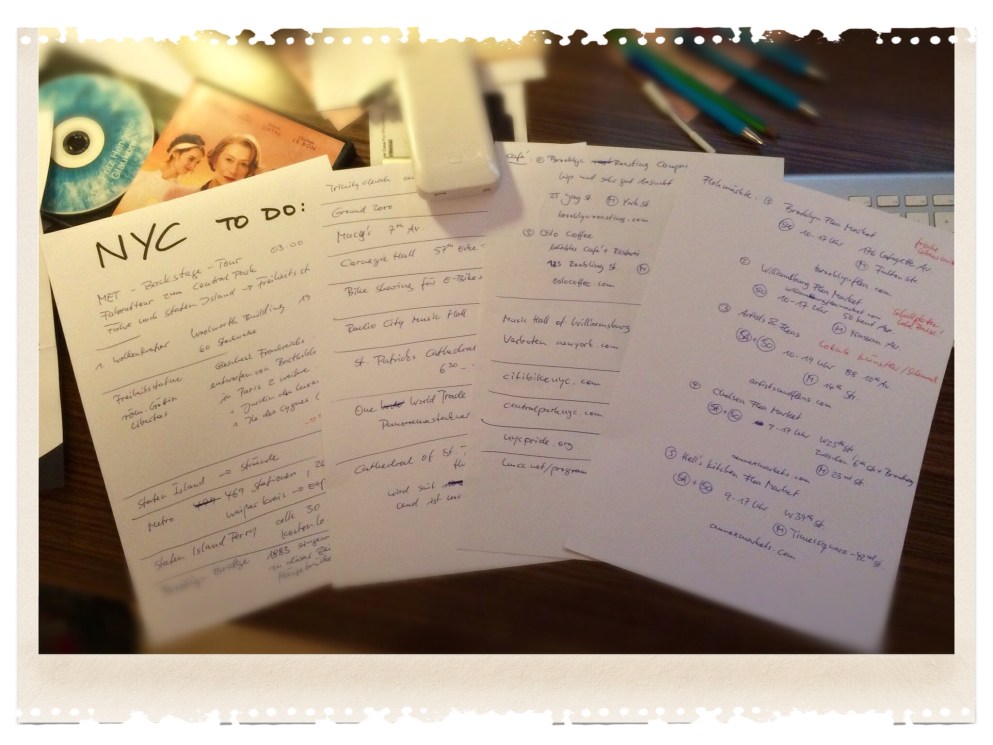 NYC TO DO:
03:00
MET - Backstage - Tour
Fahrradtour zum Central Park
Fähre nach Staten Island → Freiheitsst
1. Wolkenkratzer Woolworth Building 19
60 Stockwerke
Freiheitsstatue Geschenk Frankreichs
röm Göttin entworfen von Bartholdi
Libertas in Paris 2 weitere
Jardin du Luxem
Ile des Cygnes (
Staten Island → Strände
Metro 469 Stationen
weißer Kreis → exp
Staten Island Ferry alle 30
kostenlo
Brooklyn Bridge 1883
Hängebrücke
Trinity church
Ground Zero
Macy's 7th Av.
Carnegie Hall 57th Ecke
Bike sharing für E-Bikes
Radio City Music Hall
St. Patricks Cathedral
6 30
One World Trade
Panoramarestaurant
Cathedral of St.
wird seit
und ist
Café
① Brooklyn Roasting Compan
hip und sehr gut besucht
25 Jay St Ⓜ York St
brooklynroasting.com
② Oto Coffee
Ⓜ
Music Hall of Williamsburg
Verboten newyork.com
citibikenyc.com
centralparknyc.com
nycpride.org
Flohmärkte: ① Brooklyn Flea Market
Sa 10-17 Uhr 176 Lafayette Av.
Ⓜ Fulton Str.
brooklynflea.com
② Williamsburg Flea Market
So 10-17 Uhr 50 Kent Av
Ⓜ Nassau Av.
Schallplatten
③ Artists & Fleas
Lokale Künstler/
Sa + So 10-19 Uhr 88 10th Av.
Ⓜ 14th Str.
artistsandfleas.com
④ Chelsea Flea Market
Sa + So 7-17 Uhr W 25th St
zwischen 6th Av + Broadway
Ⓜ 23rd St.
annexmarkets.com
⑤ Hell's Kitchen Flea Market
Sa + So 9-17 Uhr W 39th St
Ⓜ Times Square - 42nd St.
annexmarkets.com